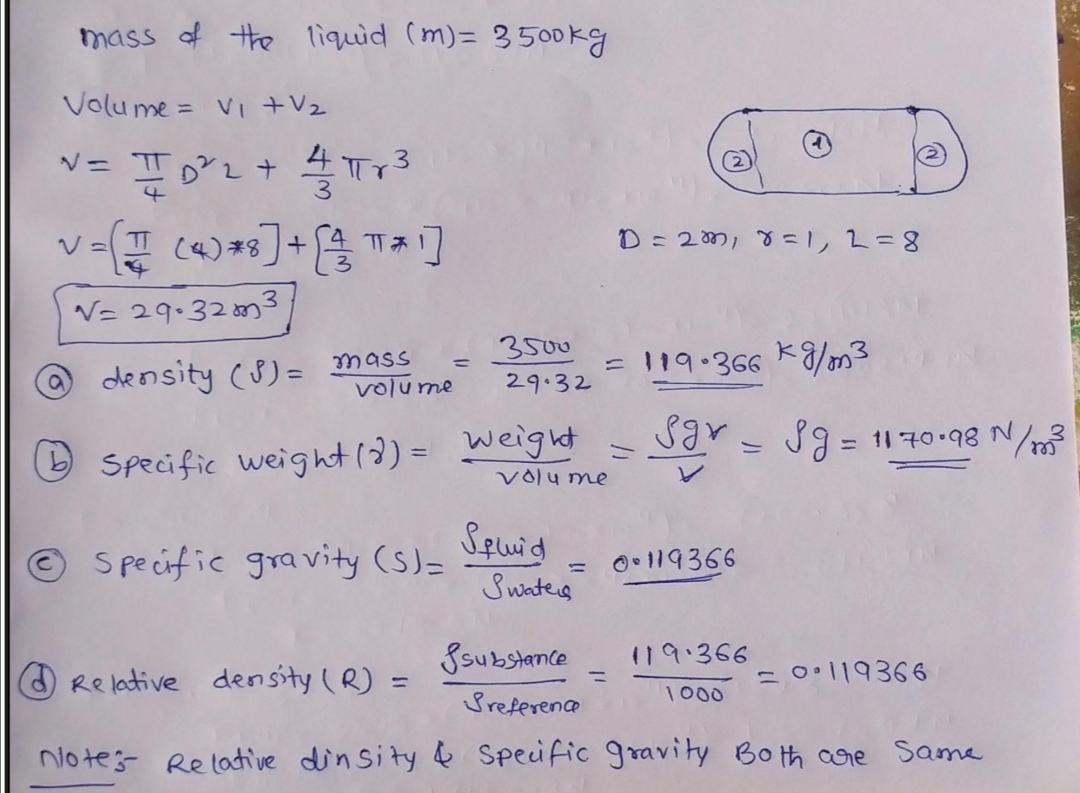 mass of the liquid (m) = 3500kg
Volume = V1 + V2
V = π/4 D² L + 4/3 π r³
V = [π/4 (4) * 8] + [4/3 π * 1]
V = 29.32 m³
① ② ②
D = 2m, r = 1, L = 8
ⓐ density (ρ) = mass/volume = 3500/29.32 = 119.366 kg/m³
ⓑ Specific weight (γ) = weight/volume = ρgv/v = ρg = 1170.98 N/m³
ⓒ Specific gravity (S) = ρfluid/ρwater = 0.119366
ⓓ Relative density (R) = ρsubstance/ρreference = 119.366/1000 = 0.119366
Note:- Relative dinsity & Specific gravity Both are Same